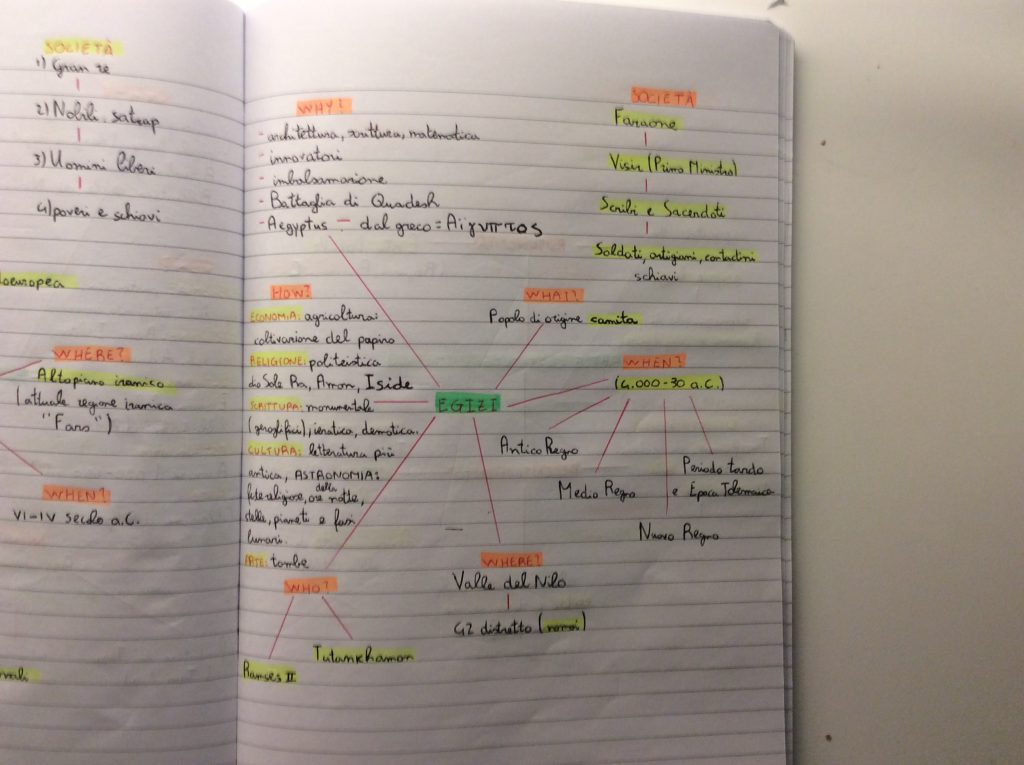 SOCIETÀ
1) Gran re
2) Nobili, satrap
3) Uomini liberi
4) poveri e schiavi
doeuropea
WHERE?
Altopiano iranico
(attuale regione iranica
"Fars")
WHEN?
VI-IV secolo a.C.
WHY?
- architettura, scrittura, matematica
- innovatori
- imbalsamazione
- Battaglia di Quadesh
- Aegyptus - dal greco = Aἴγυπτος
SOCIETÀ
Faraone
Visir (Primo Ministro)
Scribi e Sacerdoti
Soldati, artigiani, contadini
schiavi
HOW?
ECONOMIA: agricoltura:
coltivazione del papiro
RELIGIONE: politeistica
dio Sole Ra, Amon, Iside
SCRITTURA: monumentale
(geroglifici), ieratica, demotica.
CULTURA: letteratura più
antica, ASTRONOMIA:
feste religiose, ore della notte,
pianeti e fasi
lunari.
ARTE: tombe
WHAT?
Popolo di origine camita
WHEN?
(4.000-30 a.C.)
EGIZI
Antico Regno
Medio Regno
Nuovo Regno
Periodo tardo
e Epoca Tolemaica
WHERE?
Valle del Nilo
42 distretto (nomoi)
WHO?
Ramses II
Tutankhamon